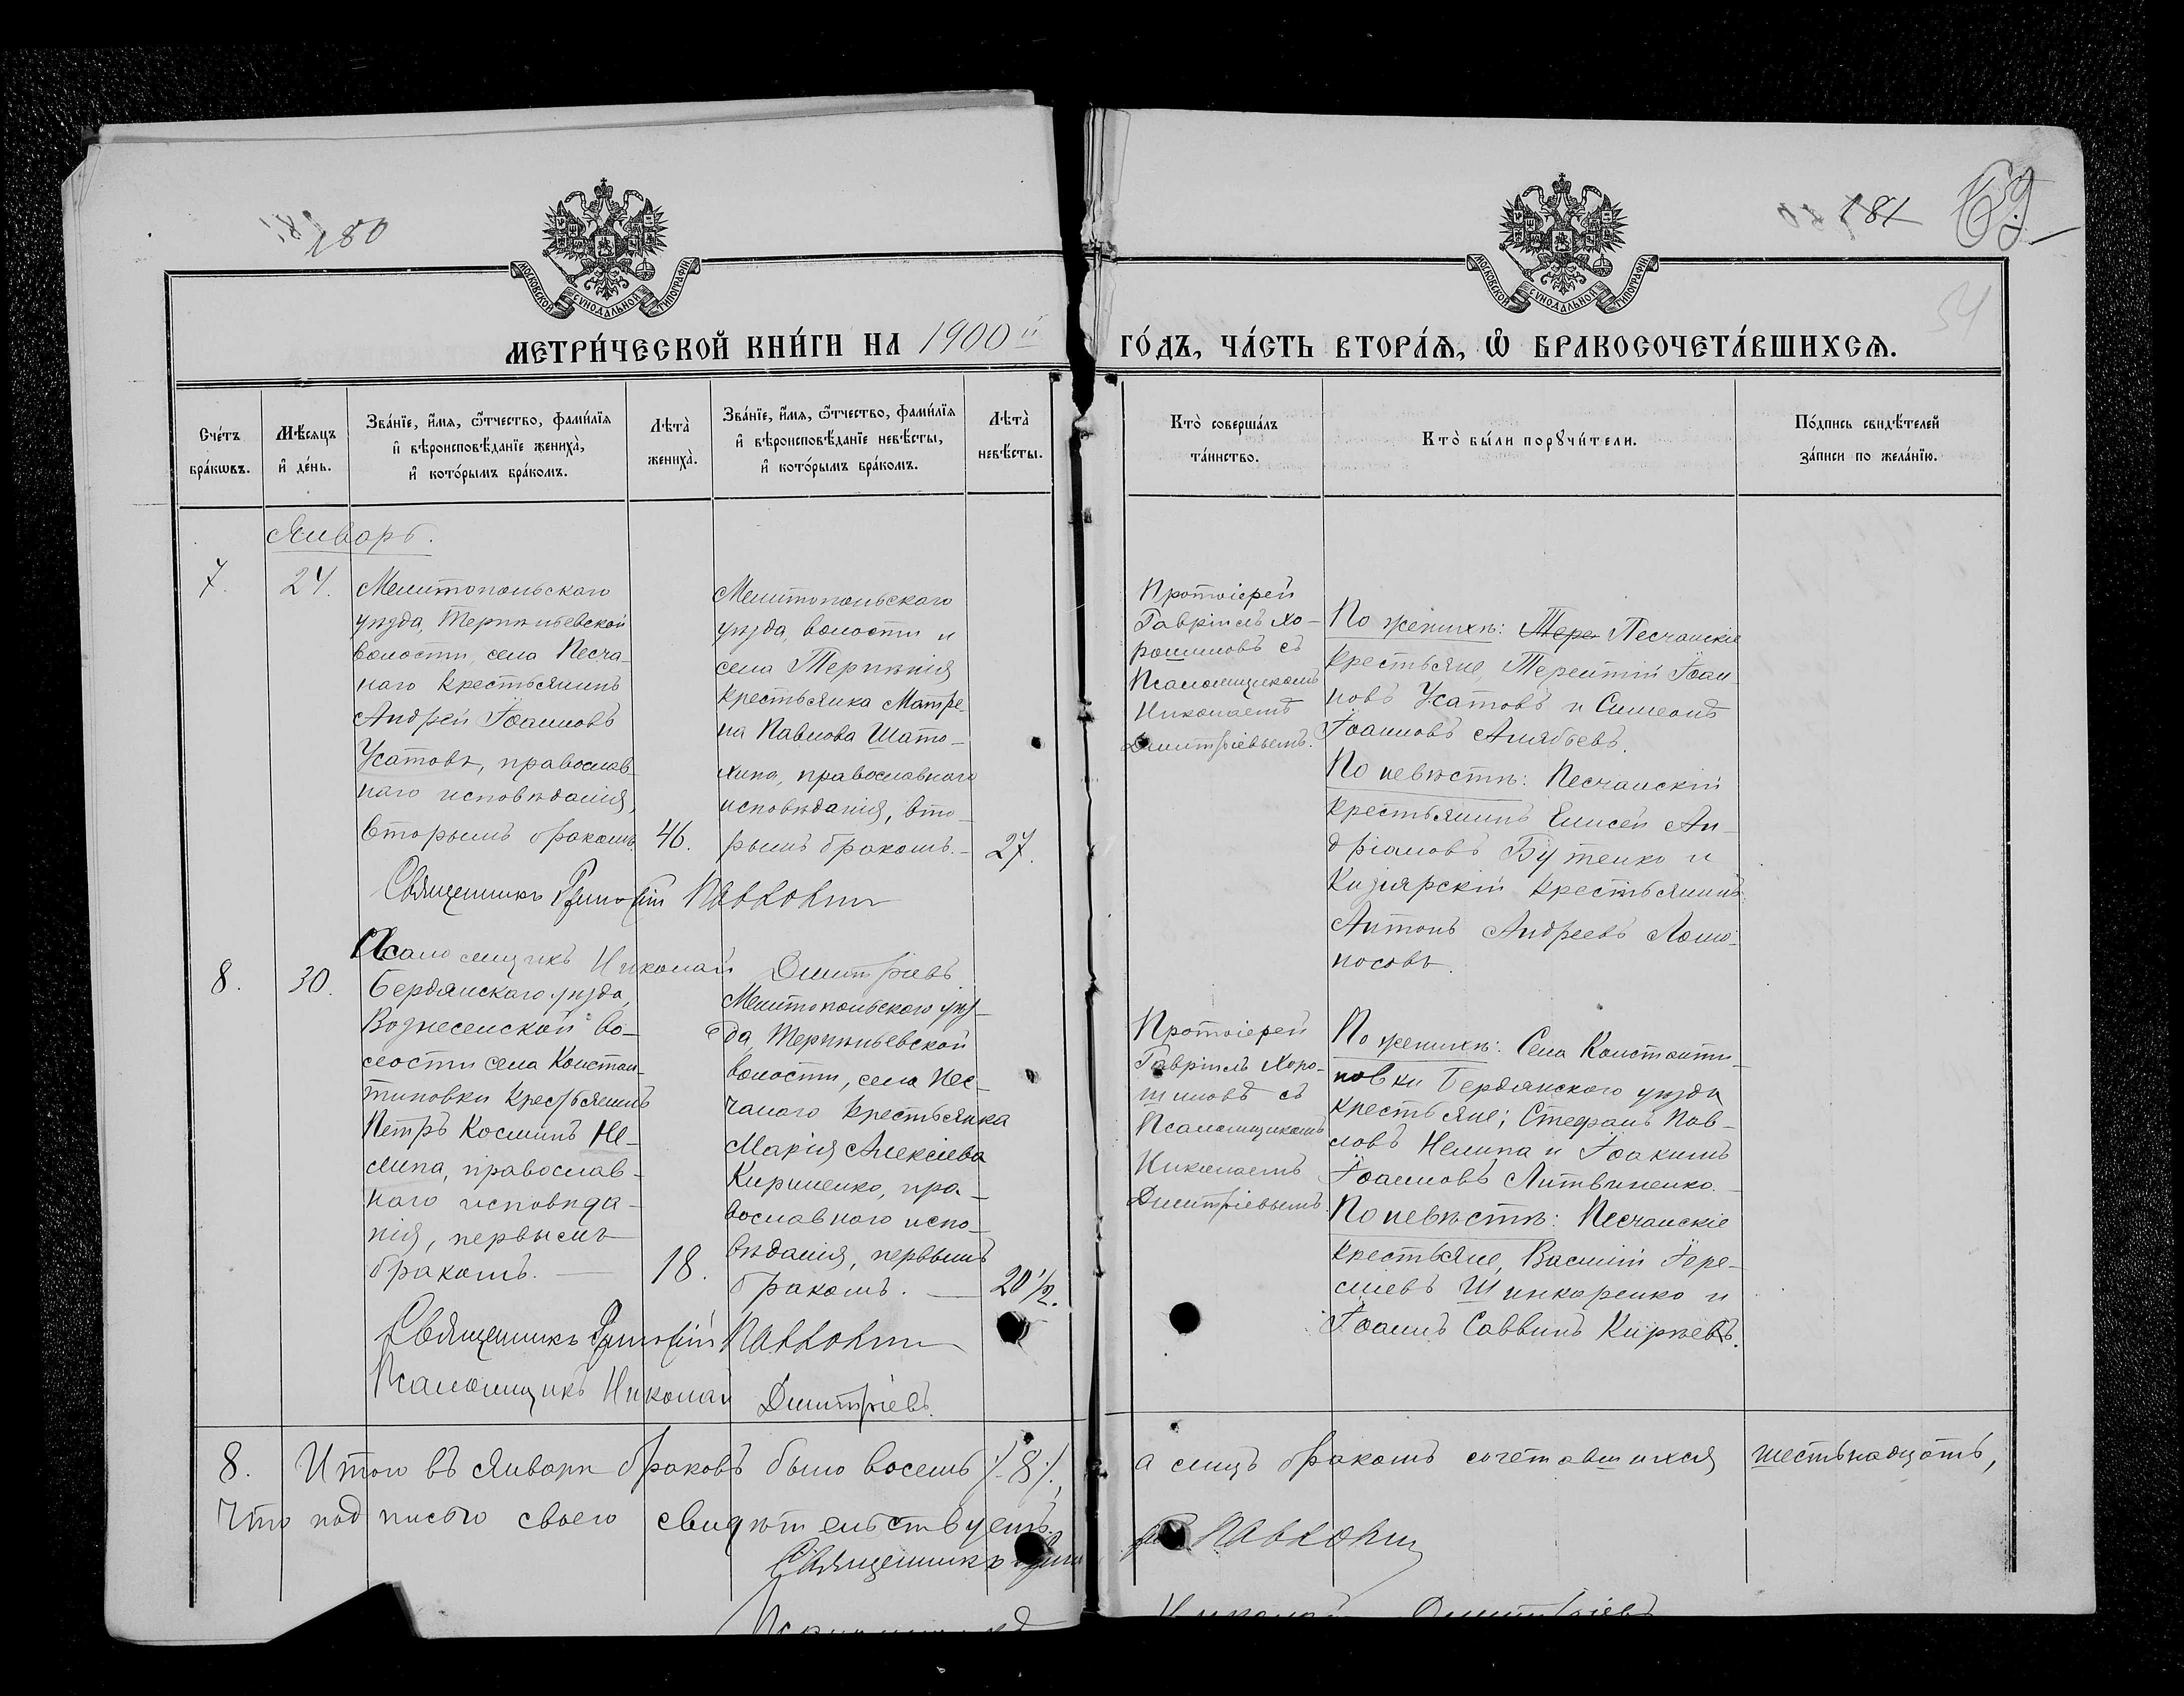 180
181
69
54
МОСКОВСКОЙ СУНОДАЛЬНОЙ ТИПОГРАФИИ
МОСКОВСКОЙ СУНОДАЛЬНОЙ ТИПОГРАФИИ
МЕТРИ́ЧЕСКОЙ КНИ́ГИ НА 1900й ГО́ДЪ, ЧА́СТЬ ВТОРА́Ѧ, Ѽ БРАКОСОЧЕТА́ВШИХСѦ.
Сче́тъ
бра́кѡвъ.
Мѣ́сѧцъ
и҆ де́нь.
Зва́нїе, и҆́мѧ, ѻ҆́тчество, фами́лїѧ
и҆ вѣроисповѣ́данїе жениха̀,
и҆ кото́рымъ бра́комъ.
Лѣта̀
жениха̀.
Зва́нїе, и҆́мѧ, ѻ҆́тчество, фами́лїѧ
и҆ вѣроисповѣ́данїе невѣ́сты,
и҆ кото́рымъ бра́комъ.
Лѣта̀
невѣ́сты.
Кто̀ соверша́лъ
та́инство.
Кто̀ бы́ли порꙋчи́тели.
По́дпись свидѣ́телей
за́писи по жела́нїю.
Январь.
7.
24.
Мелитопольскаго
уѣзда, Терпѣньевской
волости, села Песча-
наго крестьянинъ
Андрей Іоанновъ
Усатовъ, православ-
наго исповѣданія,
вторымъ бракомъ.
46.
Мелитопольскаго
уѣзда, волости и
села Терпѣнія
крестьянка Матре-
на Павлова Шато-
хина, православнаго
исповѣданія, вто-
рымъ бракомъ.-
27.
Протоіерей
Гавріилъ Хо-
рошиловъ съ
Псаломщикомъ
Николаемъ
Дмитріевымъ.
По женихѣ: Тере Песчанскіе
крестьяне, Терентій Іоан-
новъ Усатовъ и Симеонъ
Іоанновъ Алябьевъ.
По невѣстѣ: Песчанскій
крестьянинъ Елисей Ан-
дріановъ Бутенко и
Кизіярскій крестьянинъ
Антонъ Андреевъ Ломо-
носовъ.
Священникъ Павловъ
Псаломщикъ Николай Дмитріевъ
8.
30.
Бердянскаго уѣзда,
Вознесенской во-
лости села Констан-
тиновки крестьянинъ
Петръ Косминъ Не-
липа, православ-
наго исповѣда-
нія, первымъ
бракомъ. —
18.
Мелитопольскаго уѣз-
да, Терпѣньевской
волости, села Пес-
чанаго крестьянка
Марія Алексіева
Кириленко, пра-
вославнаго испо-
вѣданія, первымъ
бракомъ. —
20 1/2.
Протоіерей
Гавріилъ Хоро-
шиловъ съ
Псаломщикомъ
Николаемъ
Дмитріевымъ.
По женихѣ: Села Константи-
новки Бердянскаго уѣзда
крестьяне; Стефанъ Пав-
ловъ Нелипа и Іоакимъ
Іоанновъ Литвиненко.-
По невѣстѣ: Песчанскіе
крестьяне, Василій Іере-
міевъ Шинкаренко и
Іоаннъ Саввинъ Кирѣевъ.
Священникъ Павловъ
Псаломщикъ Николай Дмитріевъ.
8. Итого въ Январѣ браковъ было восемь /8/, а лицъ бракомъ сочетавшихся шестьнадцать,
что подписью своею свидѣтельствуемъ.
Священникъ Павловъ
Николай Дмитріевъ